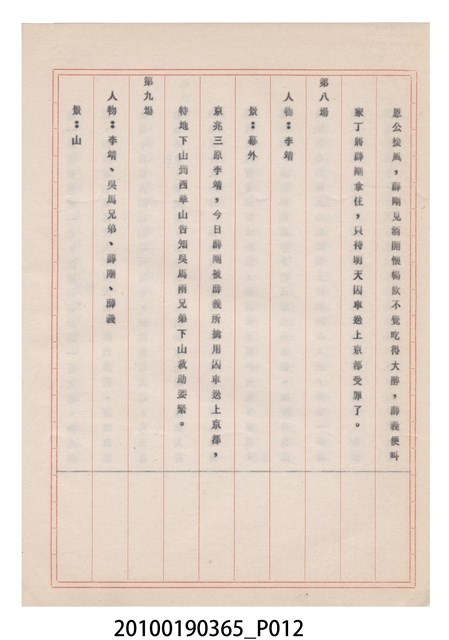 恩公接風，薛剛見酒開懷暢飲不覺吃得大醉，薛義便叫
家丁將薛剛拿住，只待明天囚車送上京都受罪了。
第八場
人物：李靖
景：幕外
京兆三原李靖，今日薛剛被薛義所擒用囚車送上京都，
特地下山到西華山告知吳馬兩兄弟下山救助要緊。
第九場
人物：李靖、吳馬兄弟、薛剛、薛義
景：山
20100190365_P012